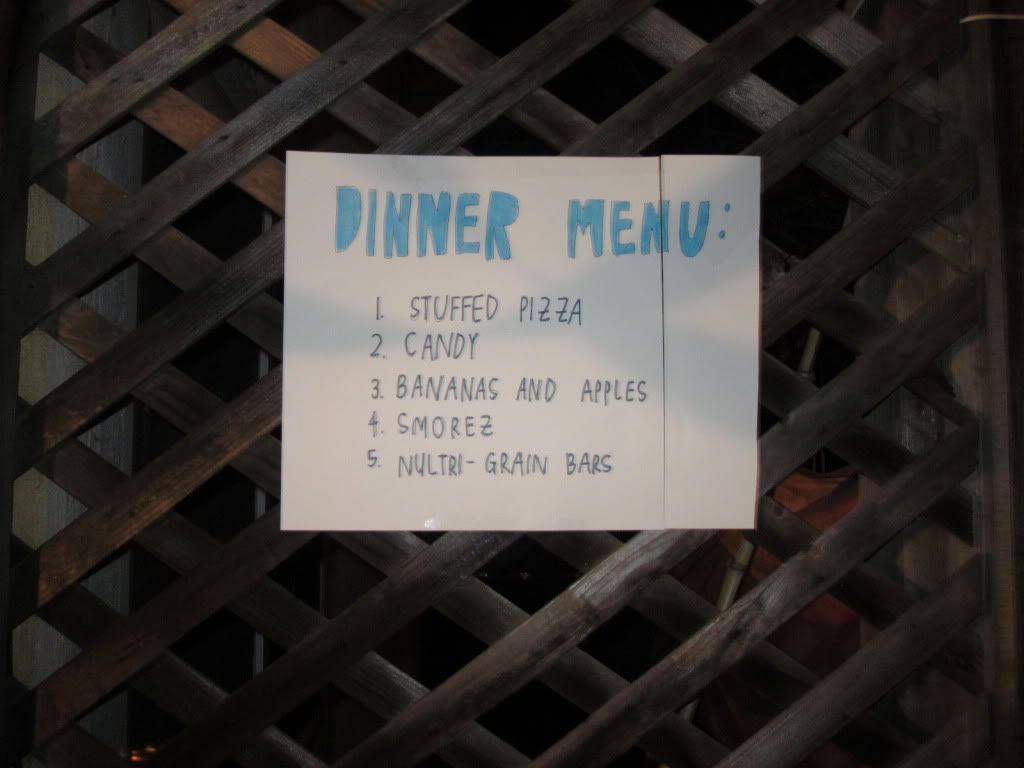 DINNER MENU:
1. STUFFED PIZZA
2. CANDY
3. BANANAS AND APPLES
4. SMOREZ
5. NULTRI-GRAIN BARS